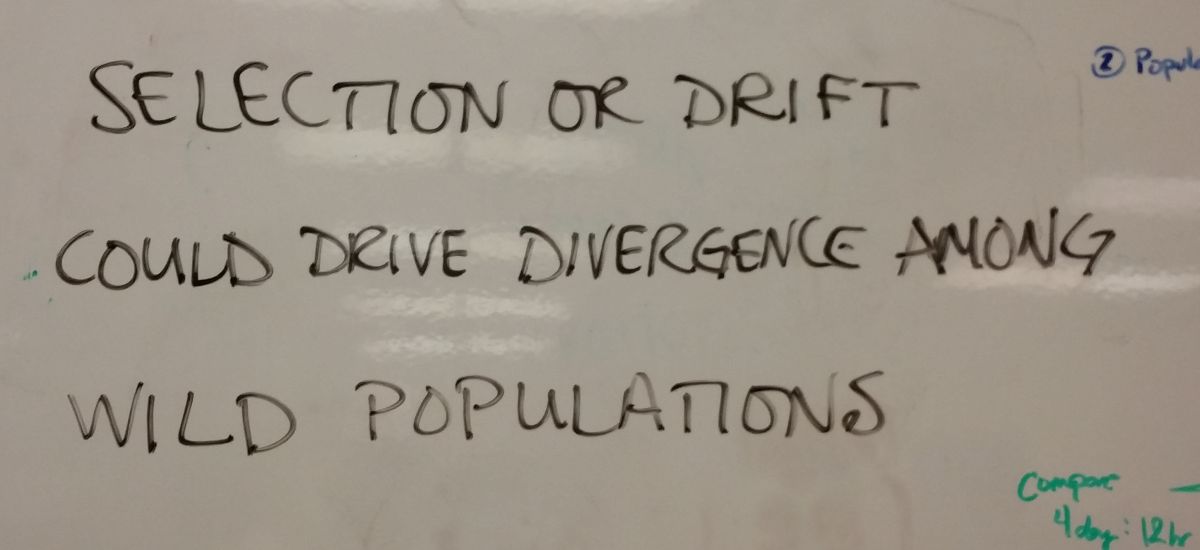 SELECTION OR DRIFT
② Popula
COULD DRIVE DIVERGENCE AMONG
WILD POPULATIONS
Compare
4 day : 12 hr